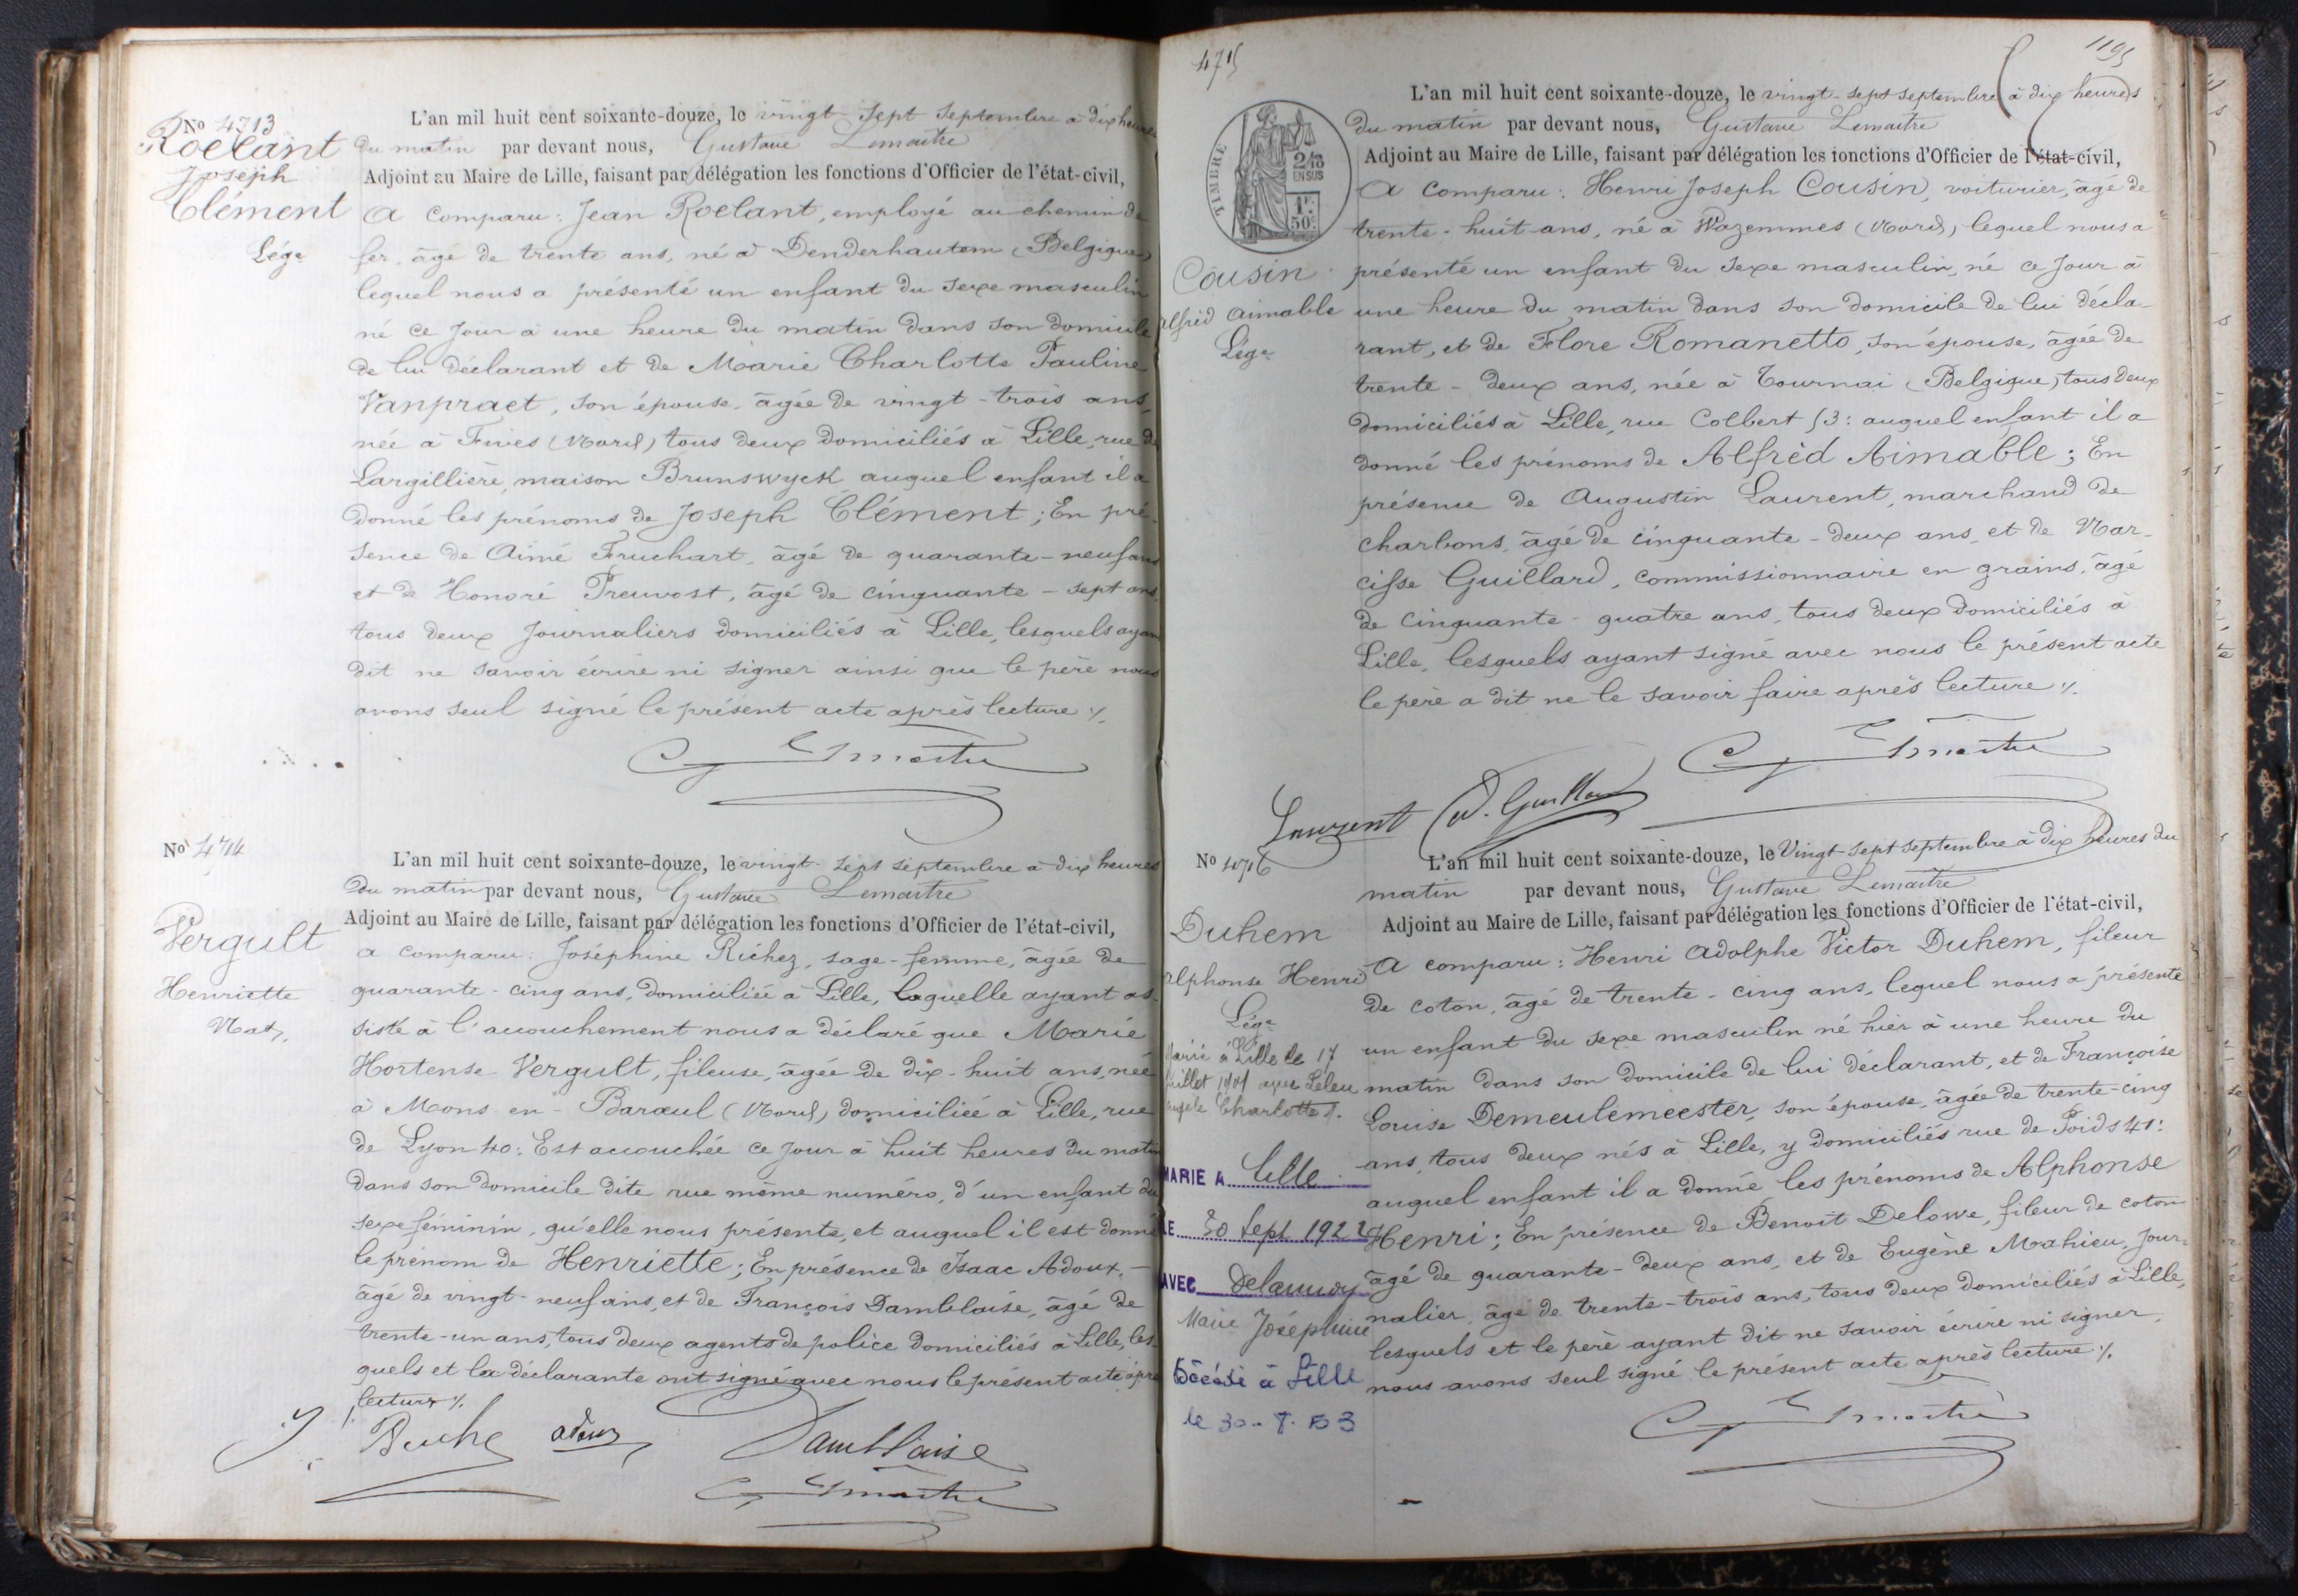 No 4713
Roelant
Joseph
Clément
Lége
L'an mil huit cent soixante-douze, le vingt-sept Septembre à dix heures
du matin par devant nous, Gustave Lemaitre
Adjoint au Maire de Lille, faisant par délégation les fonctions d'Officier de l'état-civil,
a comparu : Jean Roelant, employé au chemin de
fer, âgé de trente ans, né à Denderhautem (Belgique)
lequel nous a présenté un enfant du sexe masculin
né ce jour à une heure du matin dans son domicile
de lui déclarant et de Marie Charlotte Pauline
Vanpraet, son épouse, âgée de vingt-trois ans,
née à Fives (Nord) tous deux domiciliés à Lille, rue de
Largillière, maison Brunswyck auquel enfant il a
donné les prénoms de Joseph Clément ; En pré-
sence de Aimé Fruchart, âgé de quarante-neuf ans
et de Honoré Preuvost, âgé de cinquante-sept ans,
tous deux journaliers domiciliés à Lille, lesquels ayant
dit ne savoir écrire ni signer ainsi que le père nous
avons seul signé le présent acte après lecture ./.
G Lemaitre
No 4714
Vergult
Henriette
Nat.
L'an mil huit cent soixante-douze, le vingt-sept septembre à dix heures
du matin par devant nous, Gustave Lemaitre
Adjoint au Maire de Lille, faisant par délégation les fonctions d'Officier de l'état-civil,
a comparu : Joséphine Richez, sage-femme, âgée de
quarante-cinq ans, domiciliée à Lille, laquelle ayant as-
sisté à l'accouchement nous a déclaré que Marie
Hortense Vergult, fileuse, âgée de dix-huit ans, née
à Mons-en-Barœul (Nord) domiciliée à Lille, rue
de Lyon 40 : Est accouchée ce jour à huit heures du matin
dans son domicile dite rue même numéro, d'un enfant du
sexe féminin, qu'elle nous présente, et auquel il est donné
le prénom de Henriette ; En présence de Isaac Adoux, -
âgé de vingt-neuf ans, et de François Damblaise, âgé de
trente-un ans, tous deux agents de police domiciliés à Lille, les-
quels et la déclarante ont signé avec nous le présent acte après
lecture ./.
J. Riche adoux Damblaise
G Lemaitre
4715
1195
TIMBRE
2/10
EN SUS
1F.
50c.
Cousin
Alfréd Aimable
Lége
L'an mil huit cent soixante-douze, le vingt-sept septembre à dix heures
du matin par devant nous, Gustave Lemaitre
Adjoint au Maire de Lille, faisant par délégation les fonctions d'Officier de l'état-civil,
a comparu : Henri Joseph Cousin, voiturier, âgé de
trente-huit ans, né à Wazemmes (Nord), lequel nous a
présenté un enfant du sexe masculin, né ce jour à
une heure du matin dans son domicile de lui décla-
rant, et de Flore Romanetto, son épouse, âgée de
trente-deux ans, née à Tournai (Belgique) tous deux
domiciliés à Lille, rue Colbert 53 : auquel enfant il a
donné les prénoms de Alfréd Aimable ; En
présence de Augustin Laurent, marchand de
charbons, âgé de cinquante-deux ans, et de Nar-
cisse Guillard, commissionnaire en grains, âgé
de cinquante-quatre ans, tous deux domiciliés à
Lille, lesquels ayant signé avec nous le présent acte
le père a dit ne le savoir faire après lecture ./.
G Lemaitre
Laurent N. Guillard
No 4716
Duhem
Alphonse Henri
Lége
Marié à Lille le 17
Juillet 1901 avec Leleu
Angèle Charlotte ./.
MARIE A Lille
LE 30 Sept 1922
AVEC Delannoy
Marie Joséphine
Décédé à Lille
le 30-7-53
L'an mil huit cent soixante-douze, le Vingt-sept septembre à dix heures du
matin par devant nous, Gustave Lemaitre
Adjoint au Maire de Lille, faisant par délégation les fonctions d'Officier de l'état-civil,
A comparu : Henri Adolphe Victor Duhem, fileur
de coton, âgé de trente-cinq ans, lequel nous a présenté
un enfant du sexe masculin né hier à une heure du
matin dans son domicile de lui déclarant, et de Françoise
Louise Demeulemeester, son épouse, âgée de trente-cinq
ans, tous deux nés à Lille, y domiciliés rue de Poids 41 :
auquel enfant il a donné les prénoms de Alphonse
Henri ; En présence de Benoit Delowe, fileur de coton
âgé de quarante-deux ans, et de Eugène Mahieu, jour-
nalier, âgé de trente-trois ans, tous deux domiciliés à Lille,
lesquels et le père ayant dit ne savoir écrire ni signer,
nous avons seul signé le présent acte après lecture ./.
G Lemaitre